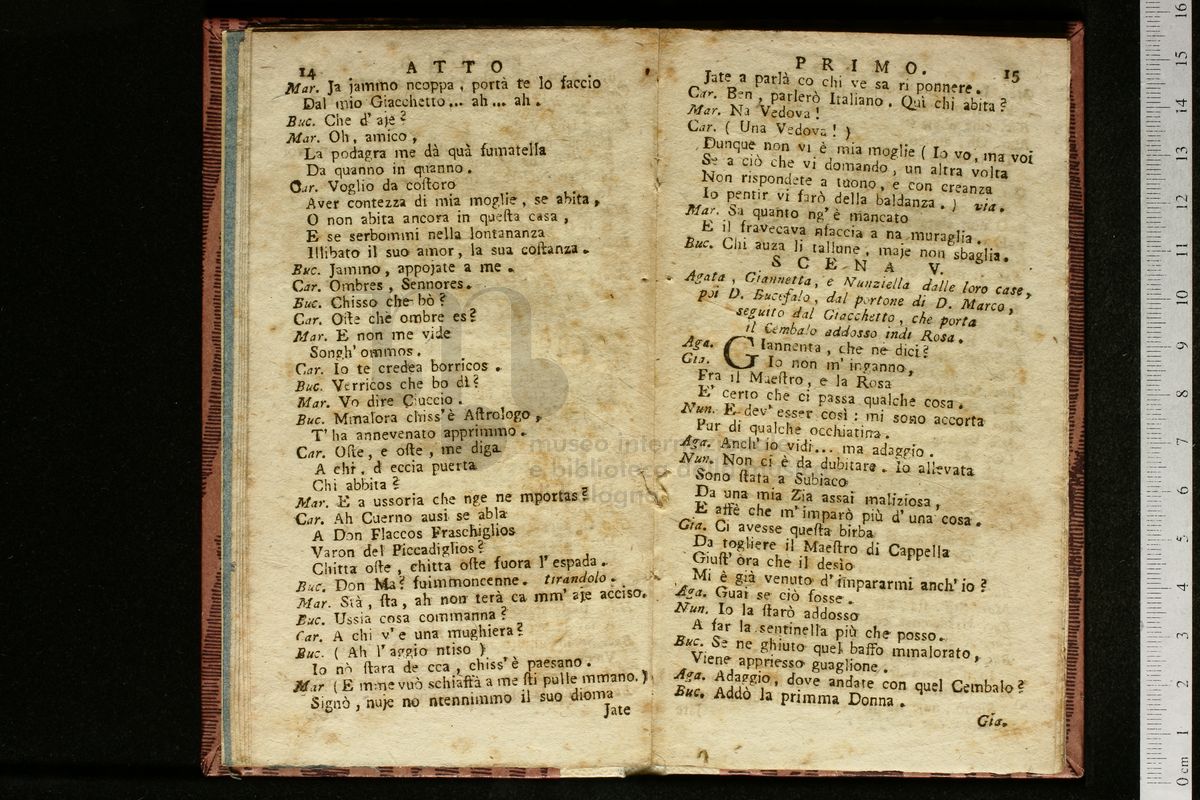 14 ATTO
Mar. Ja jammo ncoppa, portà te lo faccio
Dal mio Giacchetto... ah... ah.
Buc. Che d' aje?
Mar. Oh, amico,
La podagra me dà quà fumatella
Da quanno in quanno.
Car. Voglio da coſtoro
Aver contezza di mia moglie, se abita,
O non abita ancora in queſta casa,
E se serbommi nella lontananza
Illibato il suo amor, la sua coſtanza.
Buc. Jammo, appojate a me.
Car. Ombres, Sennores.
Buc. Chisso che bò?
Car. Oſte che ombre es?
Mar. E non me vide
Songh' ommos.
Car. Io te credea borricos.
Buc. Verricos che bo dì?
Mar. Vo dire Ciuccio.
Buc. Mmalora chiss'è Aſtrologo,
T' ha annevenato apprimmo.
Car. Oſte, e oſte, me diga
A chi. d eccia puerta
Chi abbita?
Mar. E a ussoria che nge ne mportas?
Car. Ah Cuerno ausi se abla
A Don Flaccos Fraschiglios
Varon del Piccadiglios?
Chitta oſte, chitta oſte fuora l' espada.
Buc. Don Ma? fuimmoncenne. tirandolo.
Mar. Sià, ſta, ah non terà ca mm' aje acciso.
Buc. Ussia cosa commanna?
Car. A chi v' e una mughiera?
Buc. ( Ah l' aggio ntiso )
Io nò ſtara de cca, chiss' è paesano.
Mar ( E mme vuò schiaffà a me ſti pulle mmano. )
Signò, nuje no ntennimmo il suo dioma
Jate
PRIMO. 15
Jate a parlà co chi ve sa ri ponnere.
Car. Ben, parlerò Italiano. Quì chi abita?
Mar. Na Vedova!
Car. ( Una Vedova! )
Dunque non vi è mia moglie ( Io vo, ma voi
Se a ciò che vi domando, un altra volta
Non rispondete a tuono, e con creanza
Io pentir vi farò della baldanza. ) via.
Mar. Sa quanto ng' è mancato
E il fravecava nfaccia a na muraglia.
Buc. Chi auza li tallune, maje non sbaglia.
SCENA V.
Agata, Giannetta, e Nunziella dalle loro case,
poi D. Bucefalo, dal portone di D. Marco,
seguito dal Giacchetto, che porta
il Cembalo addosso indi Rosa.
Aga. GIannenta, che ne dici?
Gia. Io non m' inganno,
Fra il Maeſtro, e la Rosa
E' certo che ci passa qualche cosa.
Nun. E dev' esser così: mi sono accorta
Pur di qualche occhiatina.
Aga. Anch' io vidi... ma adaggio.
Nun. Non ci è da dubitare. Io allevata
Sono ſtata a Subiaco
Da una mia Zia assai maliziosa,
E affè che m' imparò più d' una cosa.
Gia. Ci avesse queſta birba
Da togliere il Maeſtro di Cappella
Giuſt' ora che il desio
Mi è già venuto d' impararmi anch' io?
Aga. Guai se ciò fosse.
Nun. Io la ſtarò addosso
A far la sentinella più che posso.
Buc. Se ne ghiuto quel baffo mmalorato,
Viene appriesso guaglione.
Aga. Adaggio, dove andate con quel Cembalo?
Buc. Addò la primma Donna.
Gia.
museo internazionale
e biblioteca della musica
di bologna
16
15
14
13
12
11
10
9
8
7
6
5
4
3
2
1
0 cm